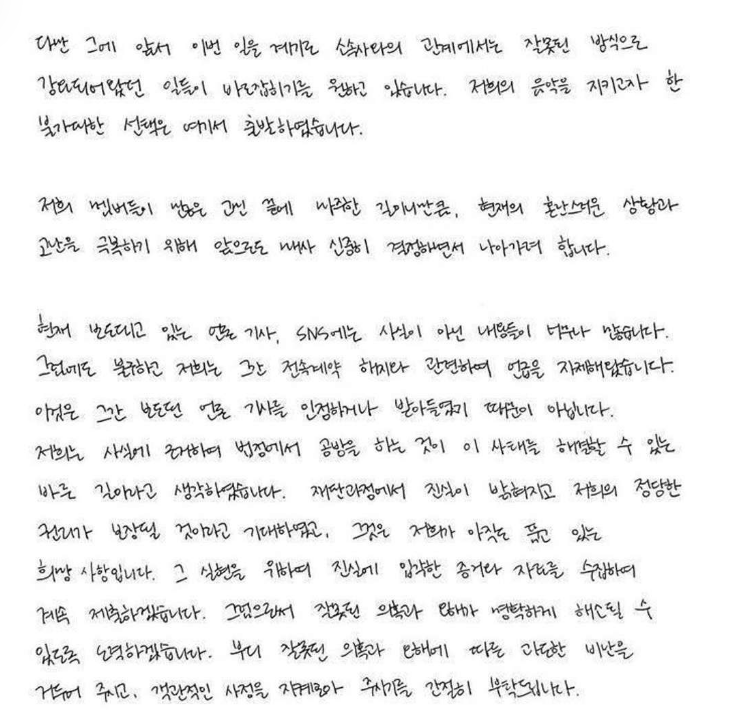 다만 그에 앞서 이번 일을 계기로 소속사와의 관계에서는 잘못된 방식으로
강요되어왔던 일들이 바로잡히기를 원하고 있습니다. 저희의 음악을 지키고자 한
불가피한 선택은 여기서 출발하였습니다.
저희 멤버들이 많은 고민 끝에 마주한 길이니만큼, 현재의 혼란스러운 상황과
고난을 극복하기 위해 앞으로도 매사 신중히 결정하면서 나아가려 합니다.
현재 보도되고 있는 언론 기사, SNS에는 사실이 아닌 내용들이 너무나 많습니다.
그럼에도 불구하고 저희는 그간 전속계약 해지와 관련하여 언급을 자제해왔습니다.
이것은 그간 보도된 언론 기사를 인정하거나 받아들였기 때문이 아닙니다.
저희는 사실에 근거하여 법정에서 공방을 하는 것이 이 사태를 해결할 수 있는
바른 길이라고 생각하였습니다. 재판과정에서 진실이 밝혀지고 저희의 정당한
권리가 보장될 것이라고 기대하였고, 그것은 저희가 아직도 품고 있는
희망 사항입니다. 그 실현을 위하여 진실에 입각한 증거와 자료를 수집하여
계속 제출하겠습니다. 그럼으로써 잘못된 의혹과 오해가 명확하게 해소될 수
있도록 노력하겠습니다. 부디 잘못된 의혹과 오해에 따른 과도한 비난을
거두어 주시고, 객관적인 사정을 지켜보아 주시기를 간절히 부탁드립니다.